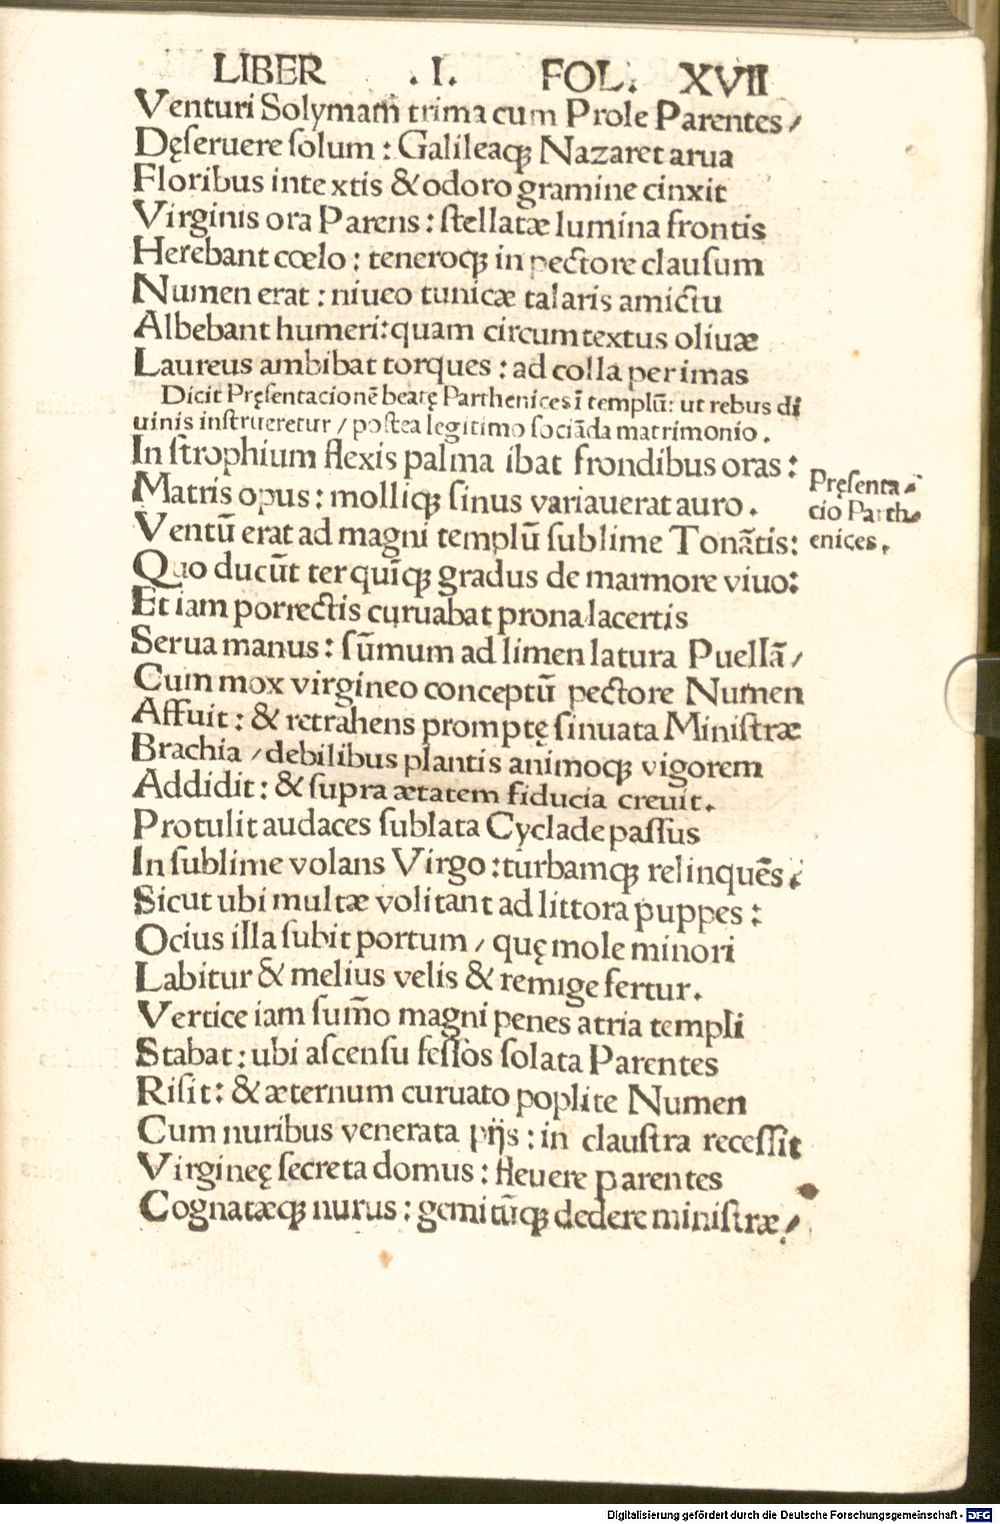 LIBER .I. FOL. XVII
Venturi Solymam̃ trima cum Prole Parentes/
Dęſeruere ſolum : Galileaqꝫ Nazaret arua
Floribus inte xtis & odoro gramine cinxit
Virginis ora Parens : ſtellatæ lumina frontis
Herebant cœlo : teneroqꝫ in pectore clauſum
Numen erat : niueo tunicæ talaris amictu
Albebant humeri: quam circumtextus oliuæ
Laureus ambibat torques : ad colla per imas
Dicit Pręſentacionē beatę Parthenices ī templū: ut rebus di
uinis inſtrueretur / poſtea legitimo ſociāda matrimonio .
In ſtrophium flexis palma ibat frondibus oras :
Matris opus : molliqꝫ ſinus variauerat auro .
Pręſenta⸗
cio Parth⸗
enices.
Ventū erat ad magni templū ſublime Tonātis:
Quo ducūt ter quīqꝫ gradus de marmore viuo:
Et iam porrectis curuabat prona lacertis
Serua manus : ſūmum ad limen latura Puellā /
Cum mox virgineo conceptū pectore Numen
Affuit : & retrahens promptę ſinuata Miniſtræ
Brachia / debilibus plantis animoqꝫ vigorem
Addidit : & ſupra ætatem fiducia creuit .
Protulit audaces ſublata Cyclade paſſus
In ſublime volans Virgo : turbamqꝫ relinquēs :
Sicut ubi multæ volitant ad littora puppes :
Ocius illa ſubit portum / quę mole minori
Labitur & melius velis & remige fertur .
Vertice iam ſum̄o magni penes atria templi
Stabat : ubi aſcenſu feſſos ſolata Parentes
Riſit : & æternum curuato poplite Numen
Cum nuribus venerata pijs : in clauſtra receſſit
Virgineę ſecreta domus : fleuere parentes
Cognatæqꝫ nurus : gemitūqꝫ dedere miniſtræ /
Digitalisierung gefördert durch die Deutsche Forschungsgemeinschaft - DFG